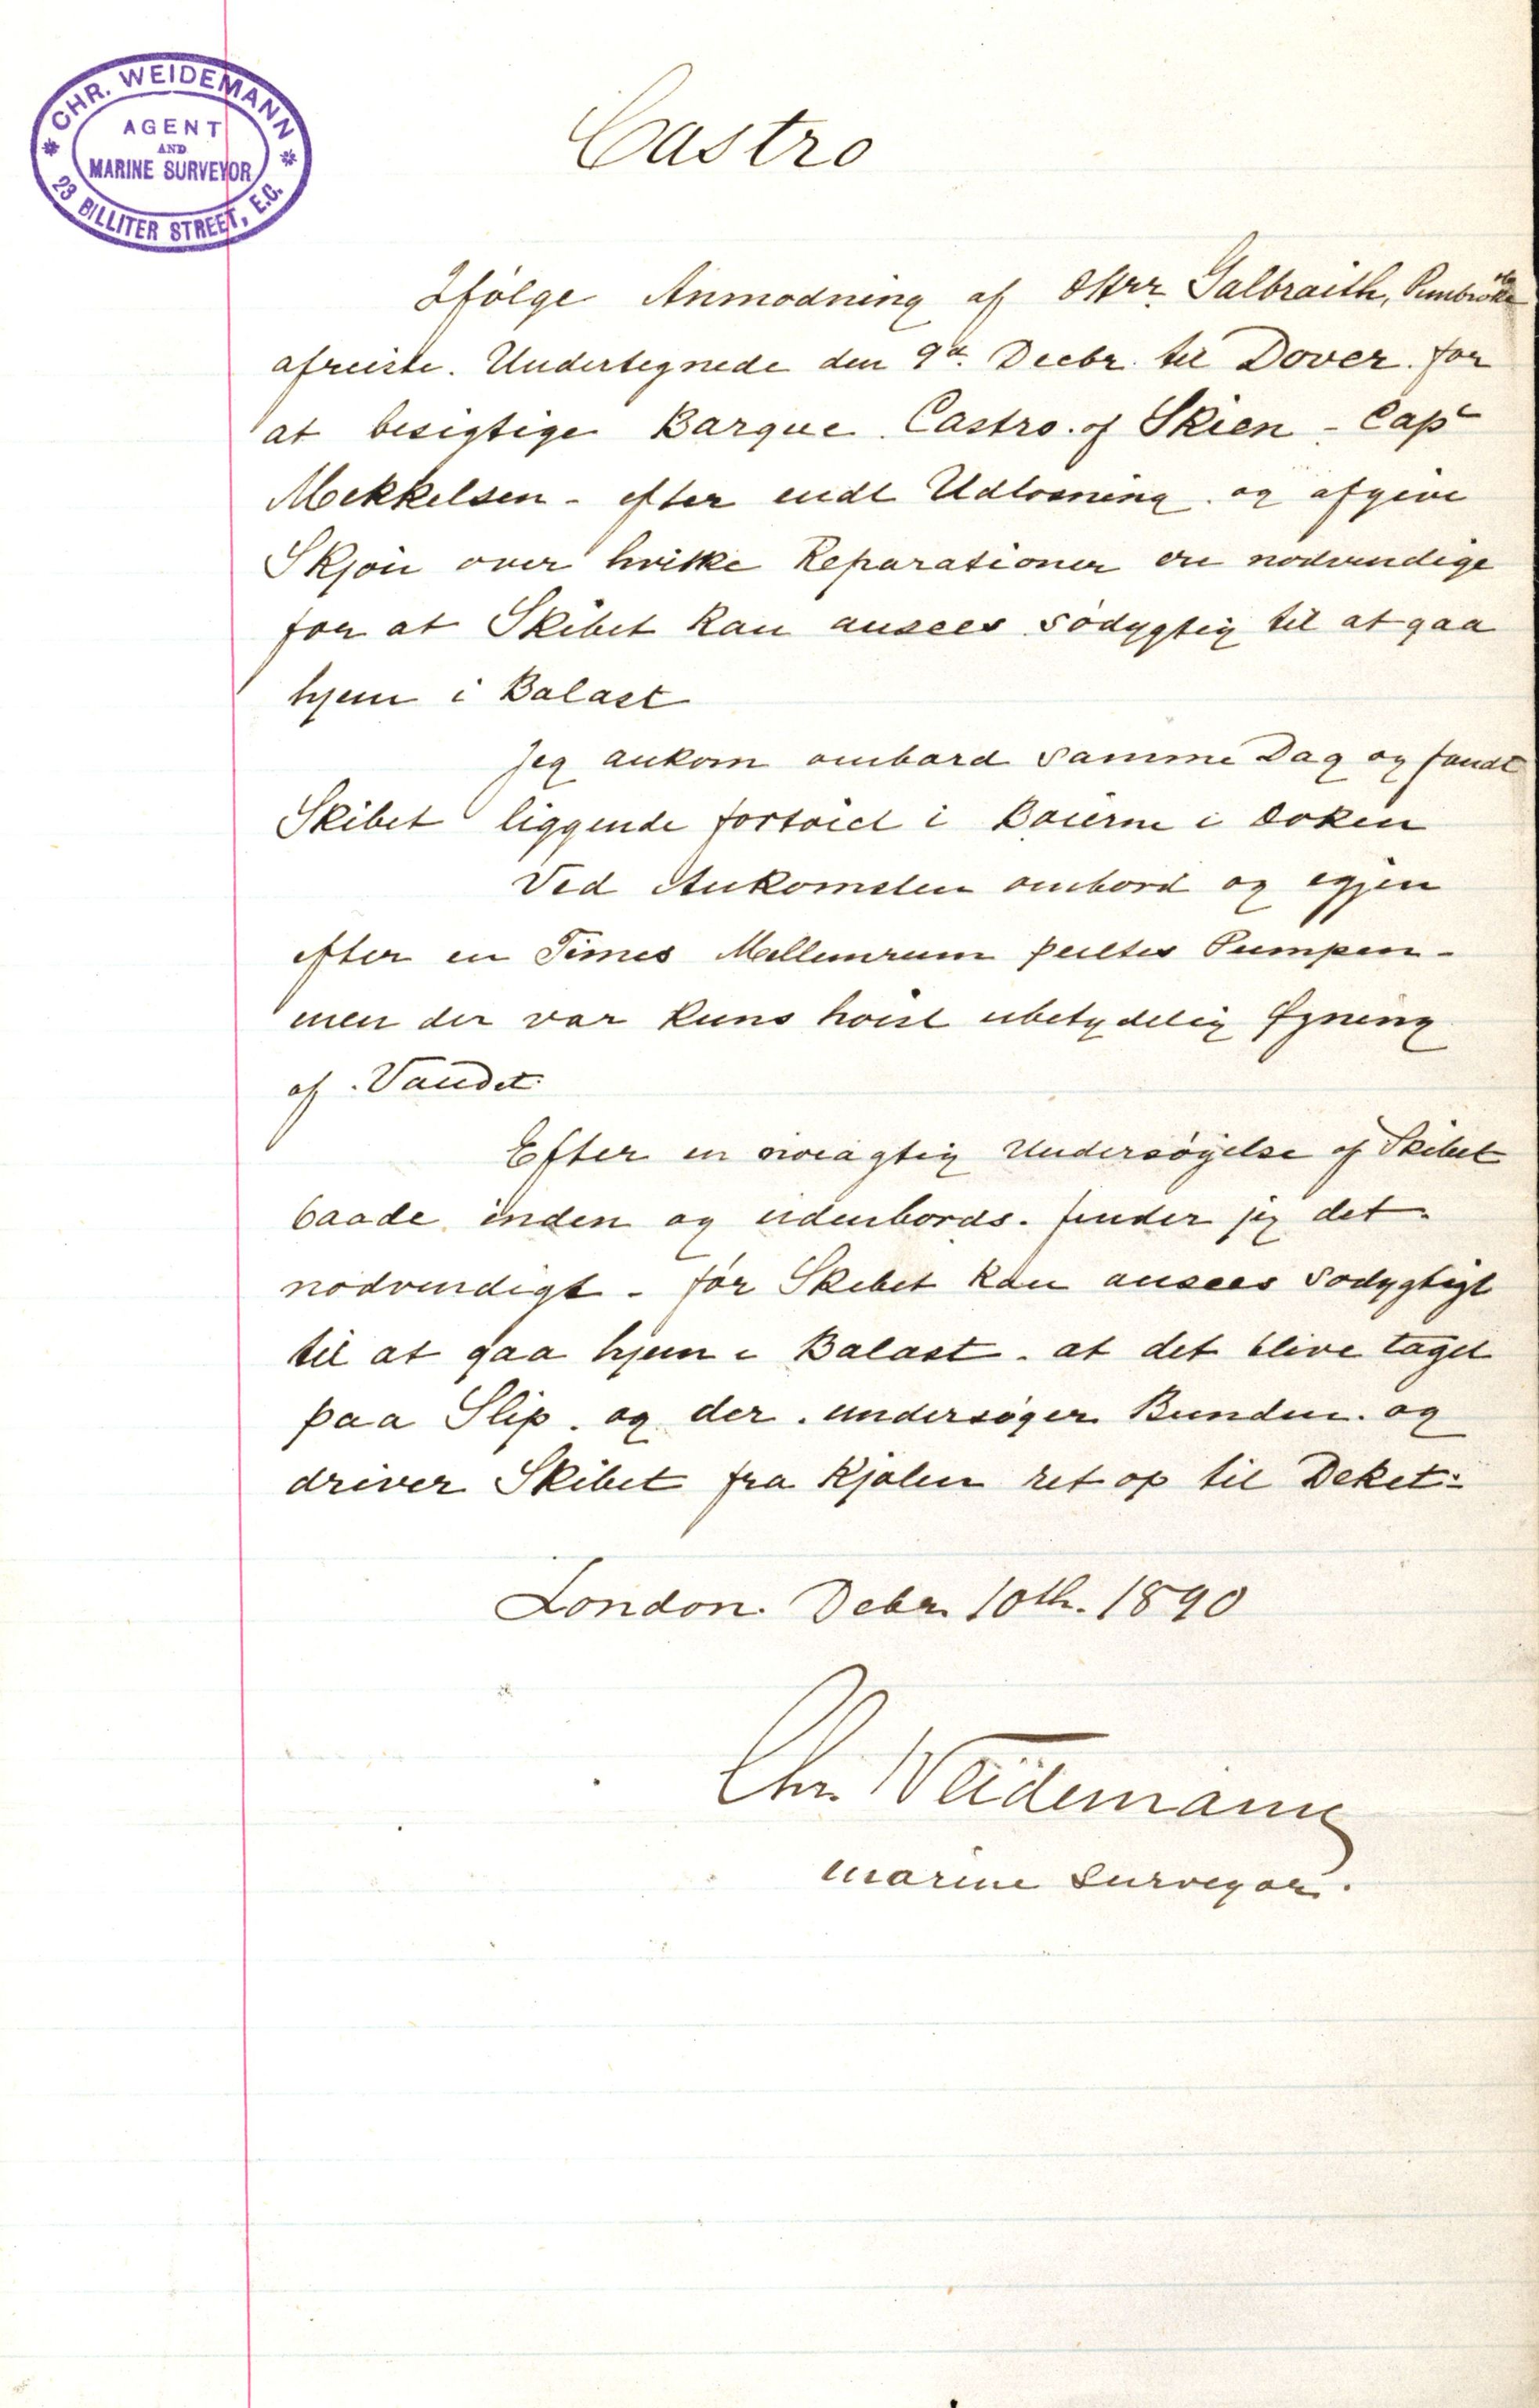 CHR. WEIDEMANN
AGENT
AND
MARINE SURVEYOR
23 BILLITER STREET, E.C.
Castro
Ifölge Anmodning af Galbraith, Pembroke
afreiste. Undertegnede den 9de Decbr. til Dover. for
at besigtige Barque. Castro. of Skien - Capt
Mekkelsen - efter endt Udlosning. og afgive
Skjön over hvilke Reparationer ere nodvendige
for at Skibet kan ansees södygtig til at gaa
hjem i Balast
Jeg ankom ombord samme Dag og fandt
Skibet liggende fortöiet i i Doken
Ved Ankomsten ombord og igjen
efter en Times Mellemrum peiltes Pumpen -
men der var kuns höist ubetydelig Ögning
af Vandet
Efter en nöiagtig Undersögelse af Skibet
baade inden og udenbords. finder jeg det
nödvendigt - för Skibet kan ansees Södygtigt
til at gaa hjem i Balast. at det blive taget
paa Slip. og der. undersöger Bunden. og
driver Skibet fra Kjölen ret op til Deket:
London. Debr. 10th. 1890
Chr. Weidemann
Marine Surveyor.